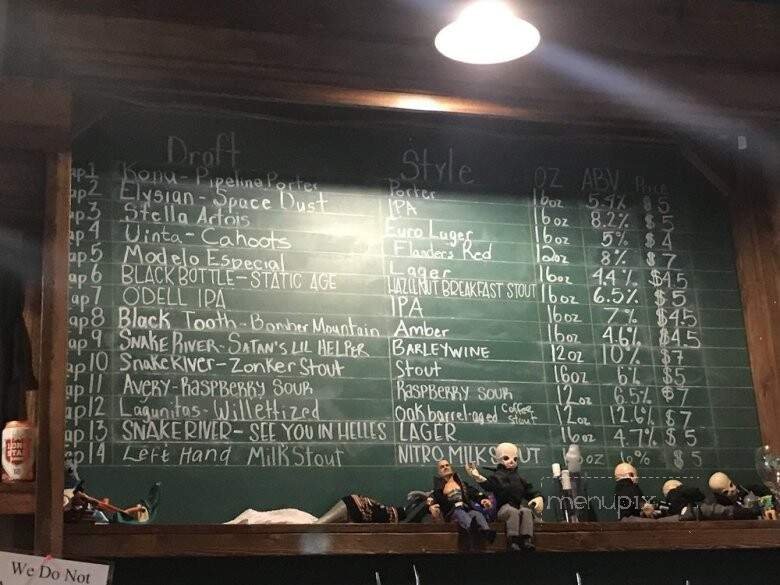 Draft Style OZ ABV Price
ap1 Kona - Pipeline Porter Porter 16oz 5.4% $5
ap2 Elysian - Space Dust IPA 16oz 8.2% $5
ap3 Stella Artois Euro Lager 16oz 5% $4
ap4 Uinta - Cahoots Flanders Red 12oz 8% $7
ap5 Modelo Especial Lager 16oz 4.4% $4.5
ap6 BLACK BOTTLE - STATIC AGE HAZELNUT BREAKFAST STOUT 16oz 6.5% $5
ap7 ODELL IPA IPA 16oz 7% $4.5
ap8 Black Tooth - Bomber Mountain Amber 16oz 4.6% $4.5
ap9 SNAKE RIVER - SATAN'S LIL HELPER BARLEYWINE 12oz 10% $7
ap10 Snake River - Zonker Stout Stout 16oz 6% $5
ap11 AVERY - RASPBERRY SOUR RASPBERRY SOUR 12oz 6.5% $7
ap12 Lagunitas - Willettized Oak barrel-aged Coffee Stout 12oz 12.6% $7
ap13 SNAKE RIVER - SEE YOU IN HELLES LAGER 16oz 4.7% $5
ap14 Left Hand Milk Stout NITRO MILK STOUT oz 6% $5
LONE STAR
menupix
We Do Not